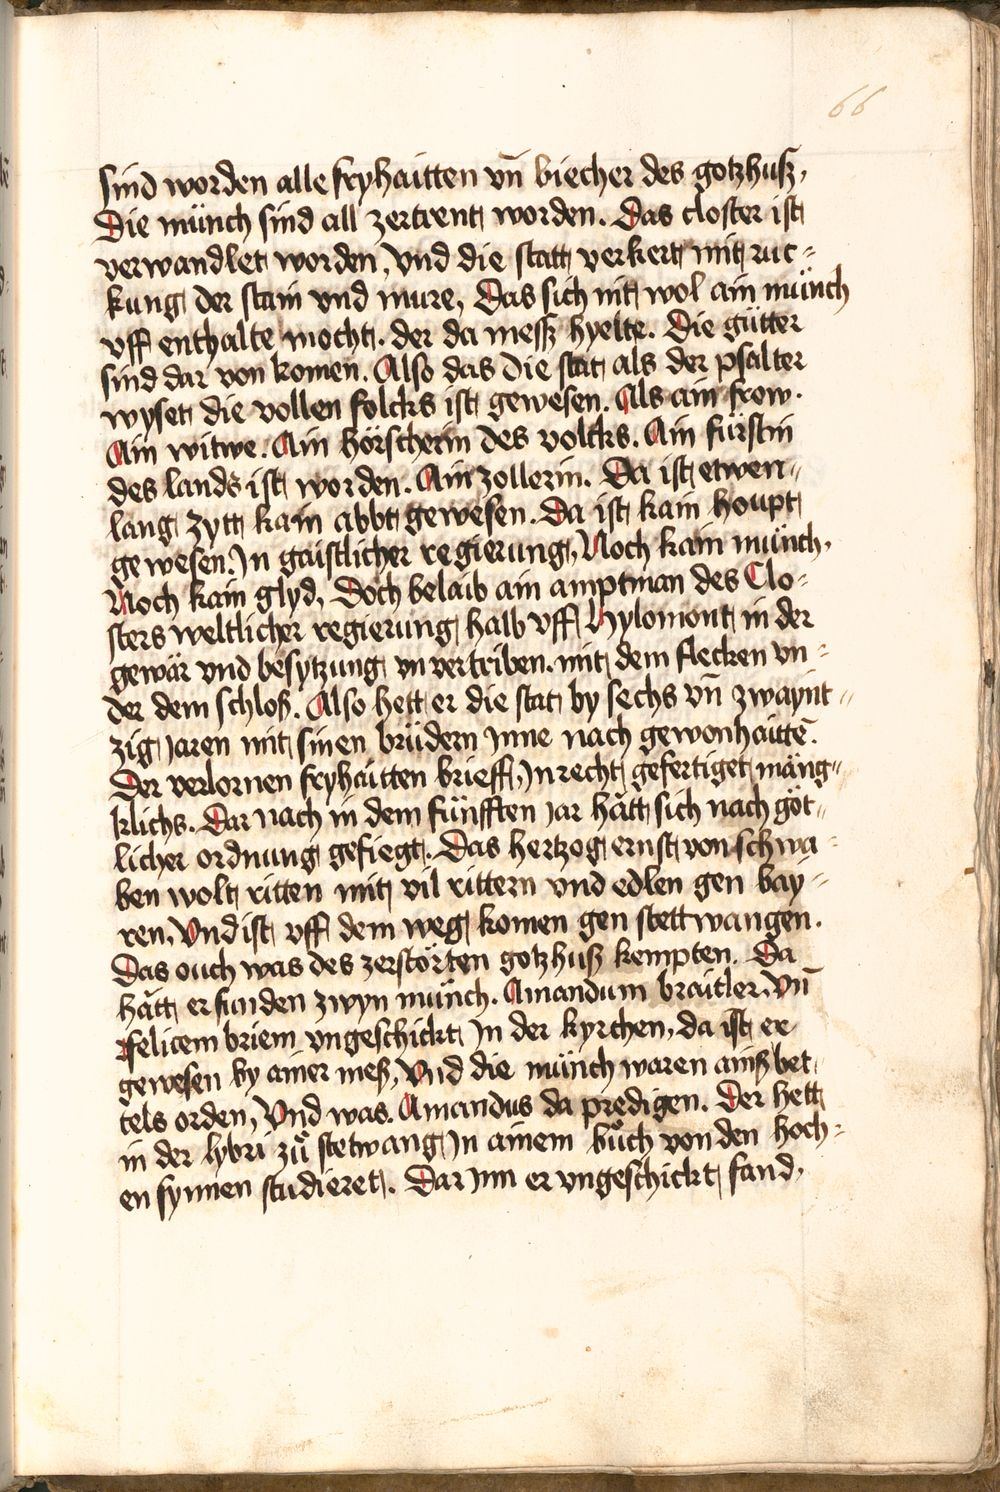 66
sind worden alle fryhaitten vn̄ biecher des gotzhusz,
Die münch sind all zertrent worden. Das closter ist
verwandlet worden, vnd die statt verkert mit ruc-
kung der stain vnd mure, Das sich nit wol ain münch
vff enthalte mocht. der da mesß hyelte. Die gütter
sind dar von komen. Also das die stat als der psalter
wyset die vollen folcks ist gewesen. Als ain frow.
Ain witwe. Ain hörscherin des volcks. Ain fürstin
des lands ist worden. Ain zollerin. Da ist etwen-
lang zytt kain abbt gewesen. Da ist kain houpt
gewesen. Jn gaistlicher regierung, Noch kain münch,
Noch kain glyd, Doch belaib ain amptman des Clo-
sters weltlicher regierung halb vff Hylomont in der
gewär vnd besytzung vnvertriben. mit dem flecken vn-
der dem schloß. Also hett er die stat by sechs vn̄ zwaynt-
zig jaren mit sinen brüdern Jnne nach gewonhaittē.
Der verlornen fryhaitten brieff, Jn recht gefertiget mäng-
klichs. Dar nach in dem fünfften jar hätt sich nach göt-
licher ordnung gefiegt. Das hertzog ernst von schwa-
ben wolt ritten mit vil rittern vnd edlen gen bay-
ren, Vnd ist vff dem weg komen gen stettwangen.
Das ouch was des zerstörten gotzhusz kempten. Da
hätt er funden zwyn münch. Amandum braitler, Vn̄
felicem briem vngeschickt Jn der kyrchen, da ist er
gewesen by ainer meß, Vnd die münch waren ainß bet-
tels orden, Vnd was. Amandus da predigen. Der hett
in der lybri zuͦ stetwang Jn ainem buͦch von den hoch-
en synnen studieret. Dar Jnn er vngeschickt fand,